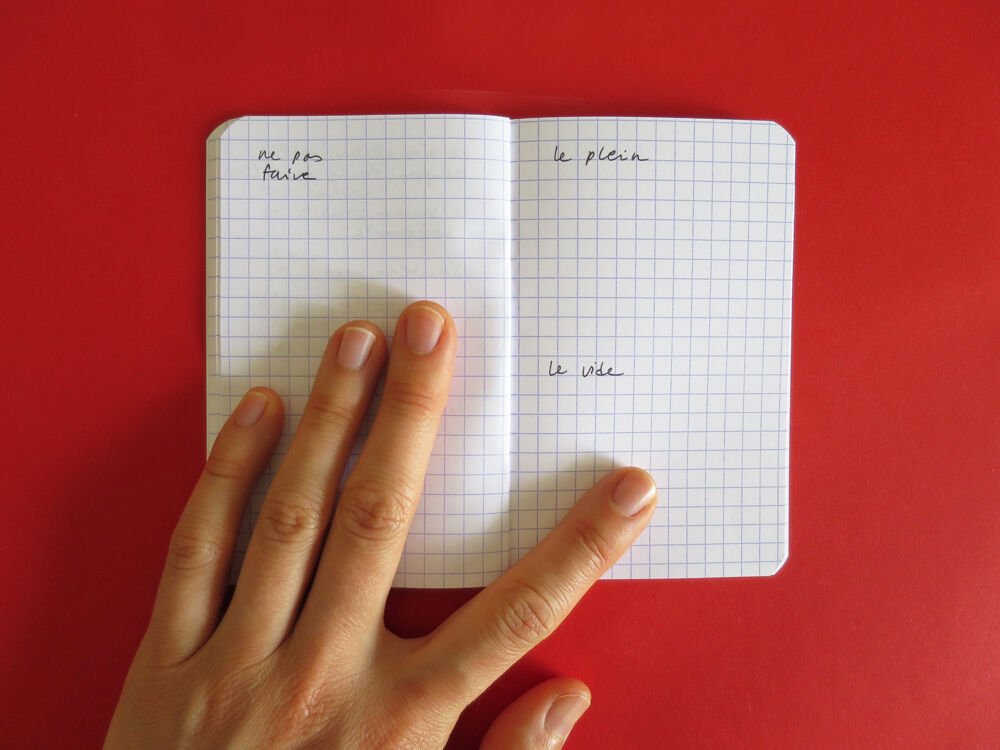 ne pas
faire
le plein
le vide